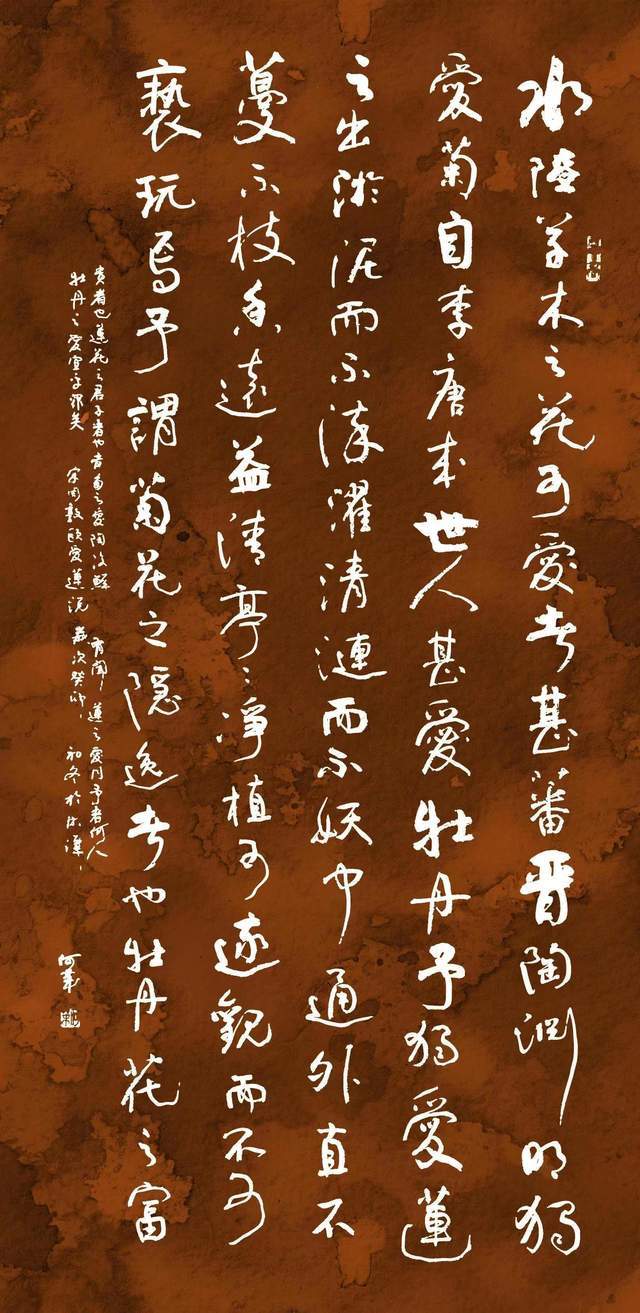 水陸草木之花可愛者甚蕃晋陶渊明独
愛菊自李唐来世人甚愛牡丹予独愛蓮
之出淤泥而不染濯清漣而不妖中通外直不
蔓不枝香遠益清亭〻净植可遠觀而不可
褻玩焉予謂菊花之隱逸者也牡丹花之富
貴者也蓮花之君子者也 菊之愛陶後鮮有聞蓮之愛同予者何人
牡丹之愛宜乎眾矣 宋周敦頤愛蓮说 歲次癸卯初冬於